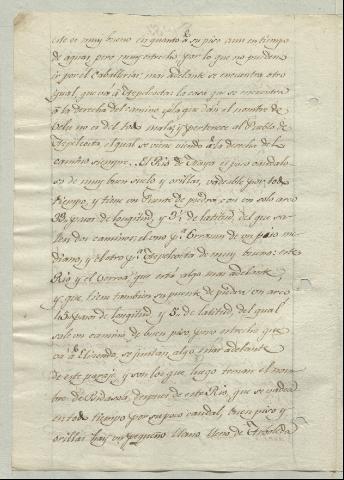 este es muy bueno en quanto á su piso aun en tiempo
de aguas, pero muy estrecho, por lo que no pueden
ir por el Caballerias: mas adelante se encuentra otro
igual que vá á Azpilcueta: la casa que se encuentra
á la derecha del camino, á la que dan el nombre de
no es del todo mala, y pertenece al Pueblo de
Azpilcueta, el qual se viene viendo á la derecha del
camino siempre. El Rio de Maya es poco caudaloso
es de muy buen suelo y orillas, vadeable por todo
tiempo, y tiene un Puente de piedra, con un solo arco
de pasos de longitud, y 3½ de latitud, del que sa-
len dos caminos; el uno pª Errazu de un piso me-
diano, y el otro pª Azpilcueta de muy bueno: este
Rio y el que está algo mas adelante
y que tiene tambien su puente de piedra un arco
15 pasos de longitud, y 5 de latitud, del qual
sale un camino de buen piso pero estrecho que
vá á Elizondo, se juntan algo mas adelante
de este parage, y son los que luego toman el nom-
bre de Bidasoa, despues de este Rio, que se vadea
en todo tiempo por su poco caudal, buen piso y
orillas hay un pequeño llano lleno de Arboleda